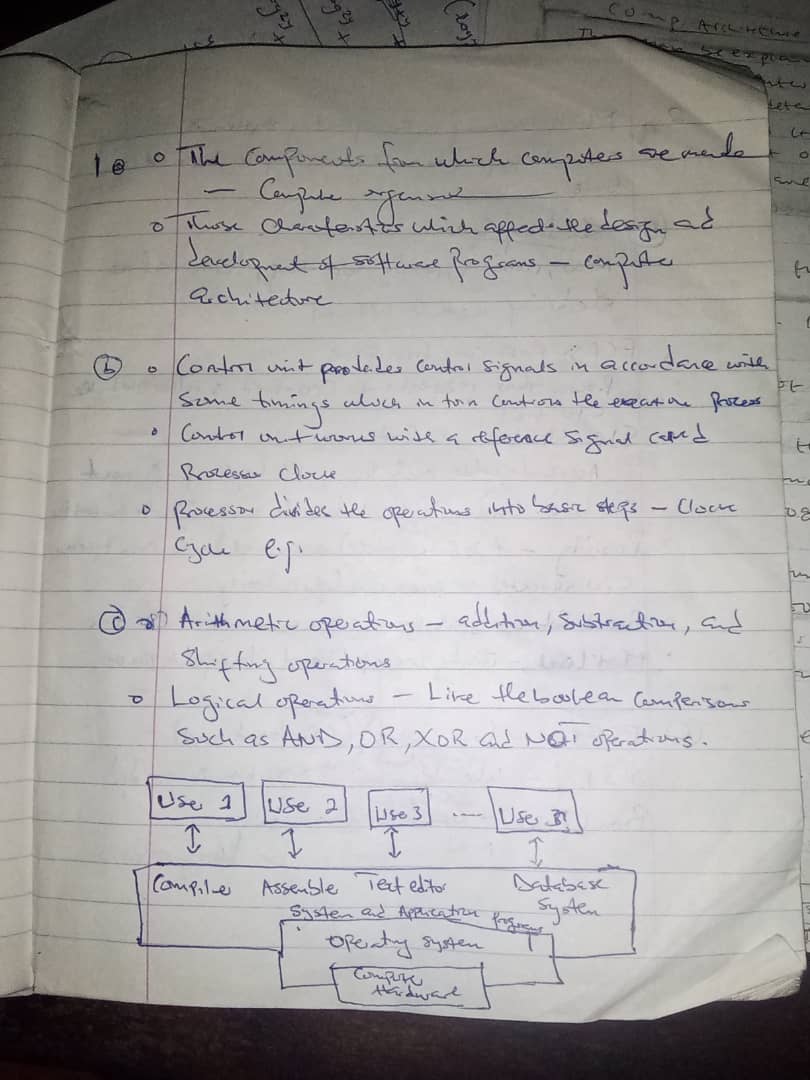 Comp Architecture
1 a o The Components from which computers are made
— Compute organisat
o Those Characteristics which affect the design and
development of software Programs — compute
architecture
b o Control unit provides Control signals in accordance with
Some timings which in turn controls the execution Process
o Control unit works with a reference signal called
Processor Clock
o Processor divides the operations into basic steps — Clock
Cycle e.g.
c o Arithmetic operations — addition, Subtraction, and
Shifting operations
o Logical operations — Like the boolean Comparisons
Such as AND, OR, XOR and NOT operations.
Use 1 Use 2 Use 3 .... Use n
Compile Assemble Text editor Database System
System and Application Programs
Operating system
Compute Hardware